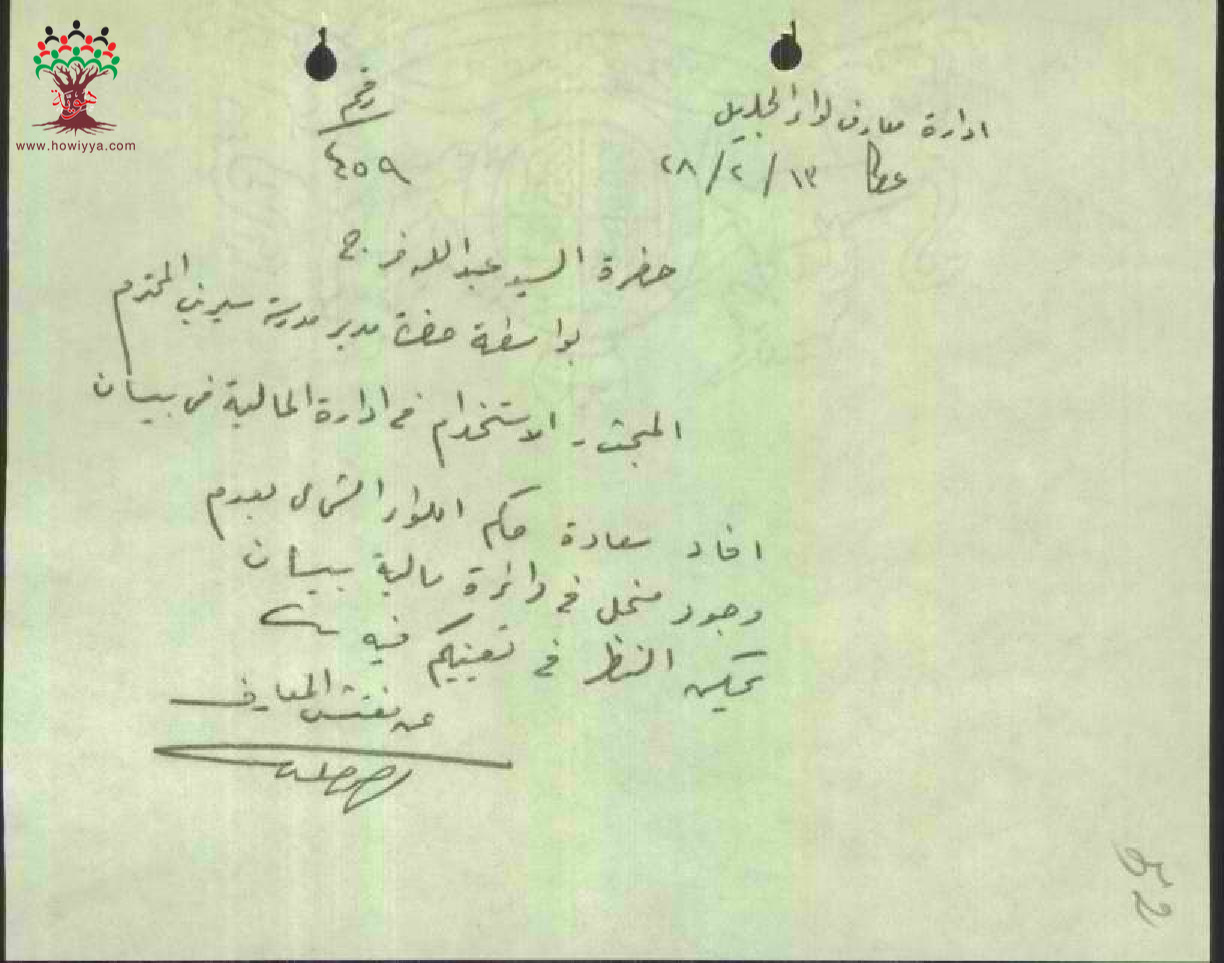 ادارة معارف لواء الجليل
عكا ١٣/٢/٢٨
رقم
٤٥٩
حضرة السيد عبدالله فرج
بواسطة حضرة مدير مدرسة سيرين المحترم
المبحث - الاستخدام في ادارة المالية في بيسان
افاد سعادة حاكم اللواء الشمالي بعدم
وجود محل في دائرة مالية بيسان
يمكن النظر في تعيينكم فيه
عن مفتش المعارف
52
هوية
www.howiyya.com